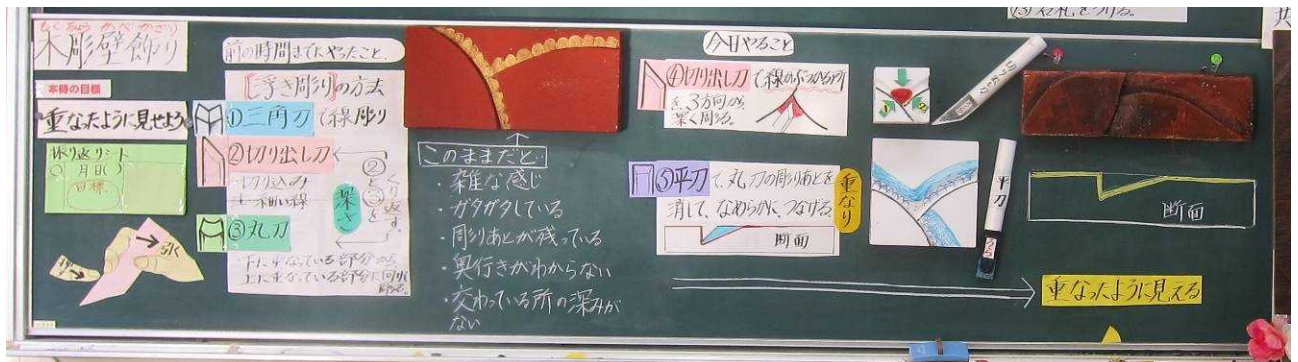 もくちょうかべかざり
木彫壁飾り
本時の目標
重なったように見せよう
振り返りシート
月日( )
目標
引く
前の時間までにやったこと
[浮き彫り]の方法
①三角刀で線彫り
②切り出し刀
切り込み
③丸刀
深さ
②と③をくり返す。
下に重なっている部分から
このままだと
・雑な感じ
・ガタガタしている
・彫りあとが残っている
・奥行きがわからない
・交わっている所の深みが
ない
今日やること
④切り出し刀で線がぶつかる所
を、3方向から
深く彫る。
⑤平刀で、丸刀の彫りあとを
消して、なめらかに、つなげる。
断面
重なり
1
2
切り出し刀
平刀
断面
重なったように見える